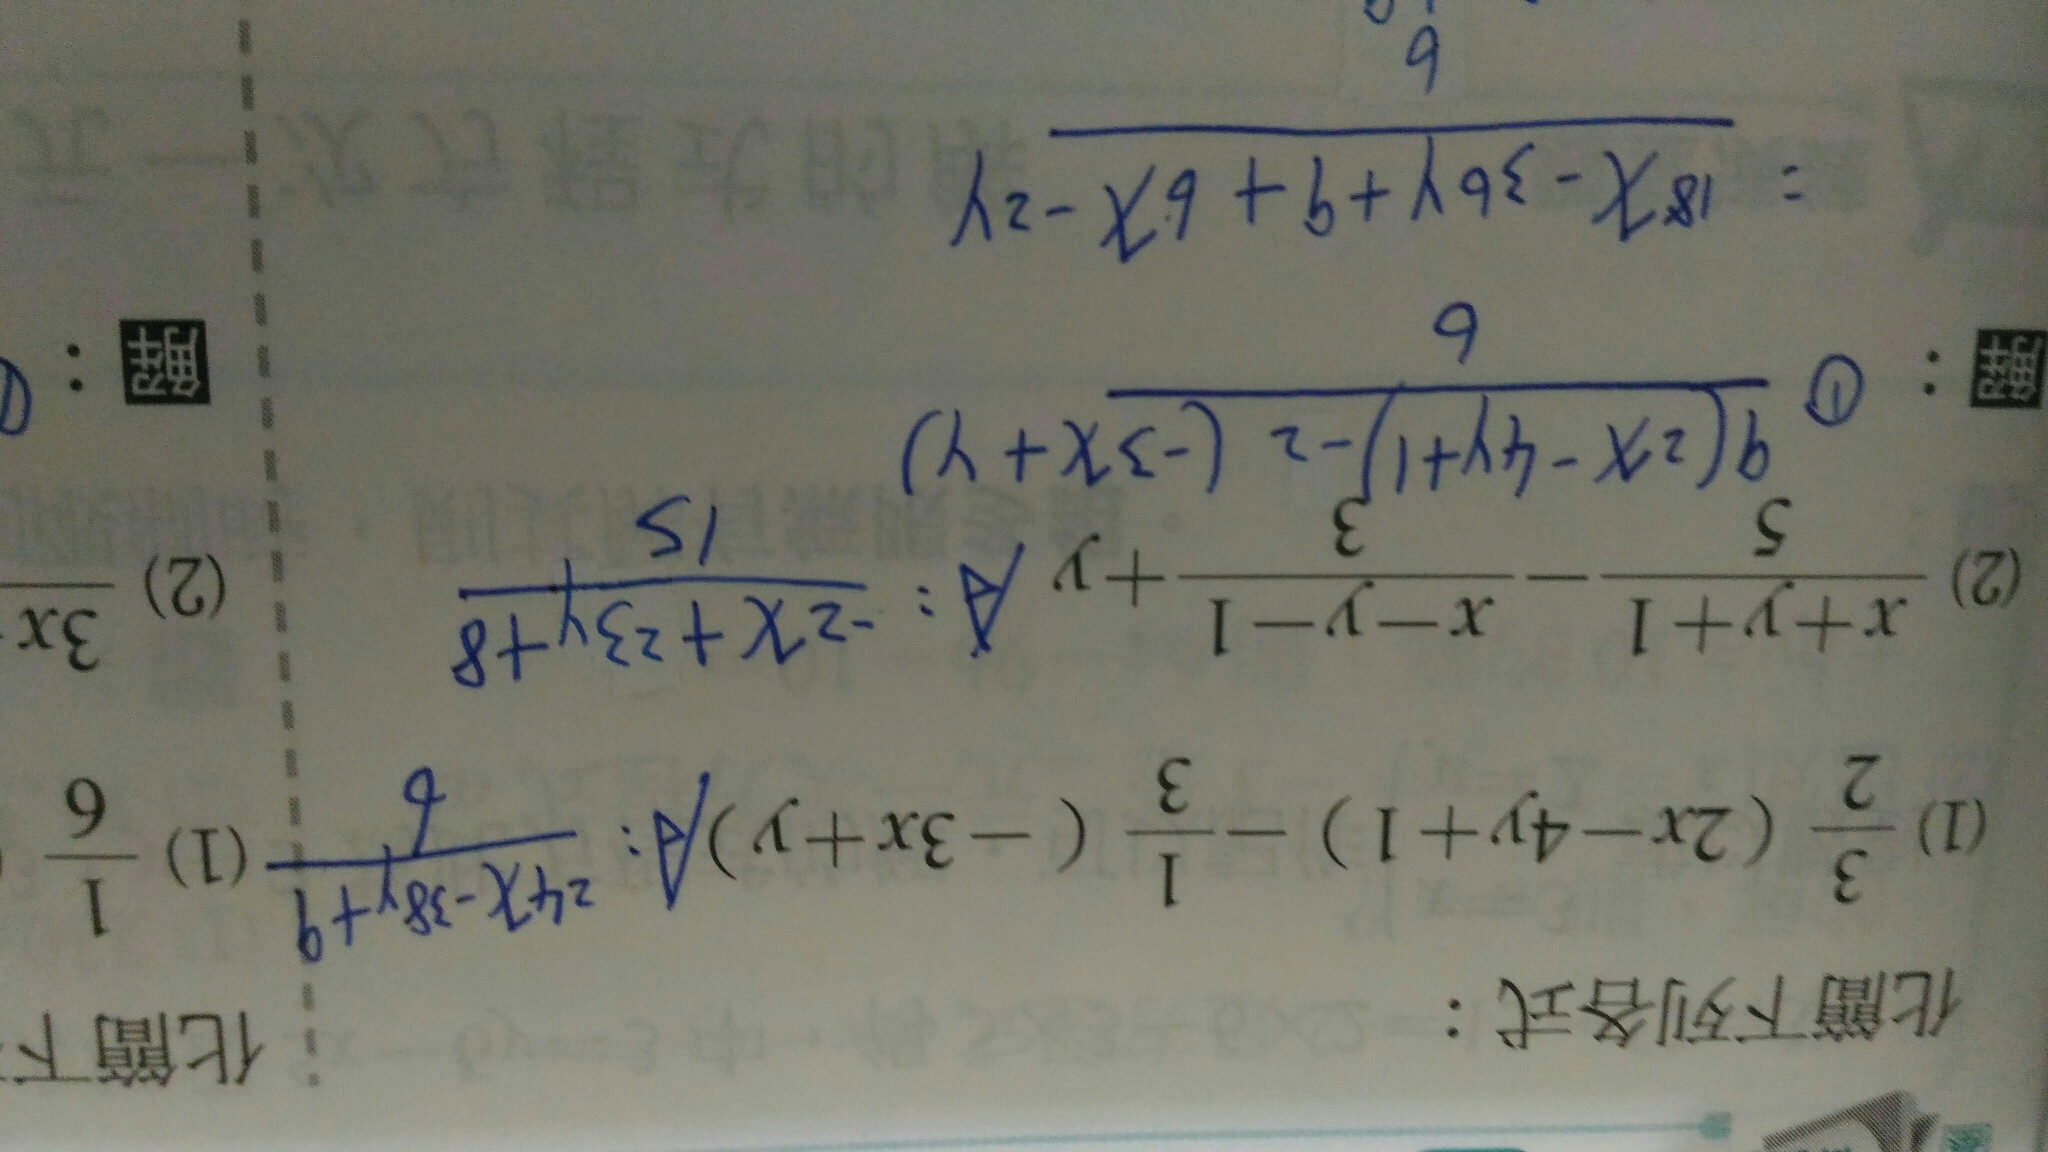 化簡下列各式：
(1) 3/2 (2x−4y+1) − 1/3 (−3x+y) A: 24x-38y+9/6
(2) x+y+1/5 − x−y−1/3 + y A: -2x+23y+8/15
解： ① 9(2x-4y+1)-2(-3x+y)/6
= 18x-36y+9+6x-2y/6
化簡下
(1) 1/6
(2) 3x
解：